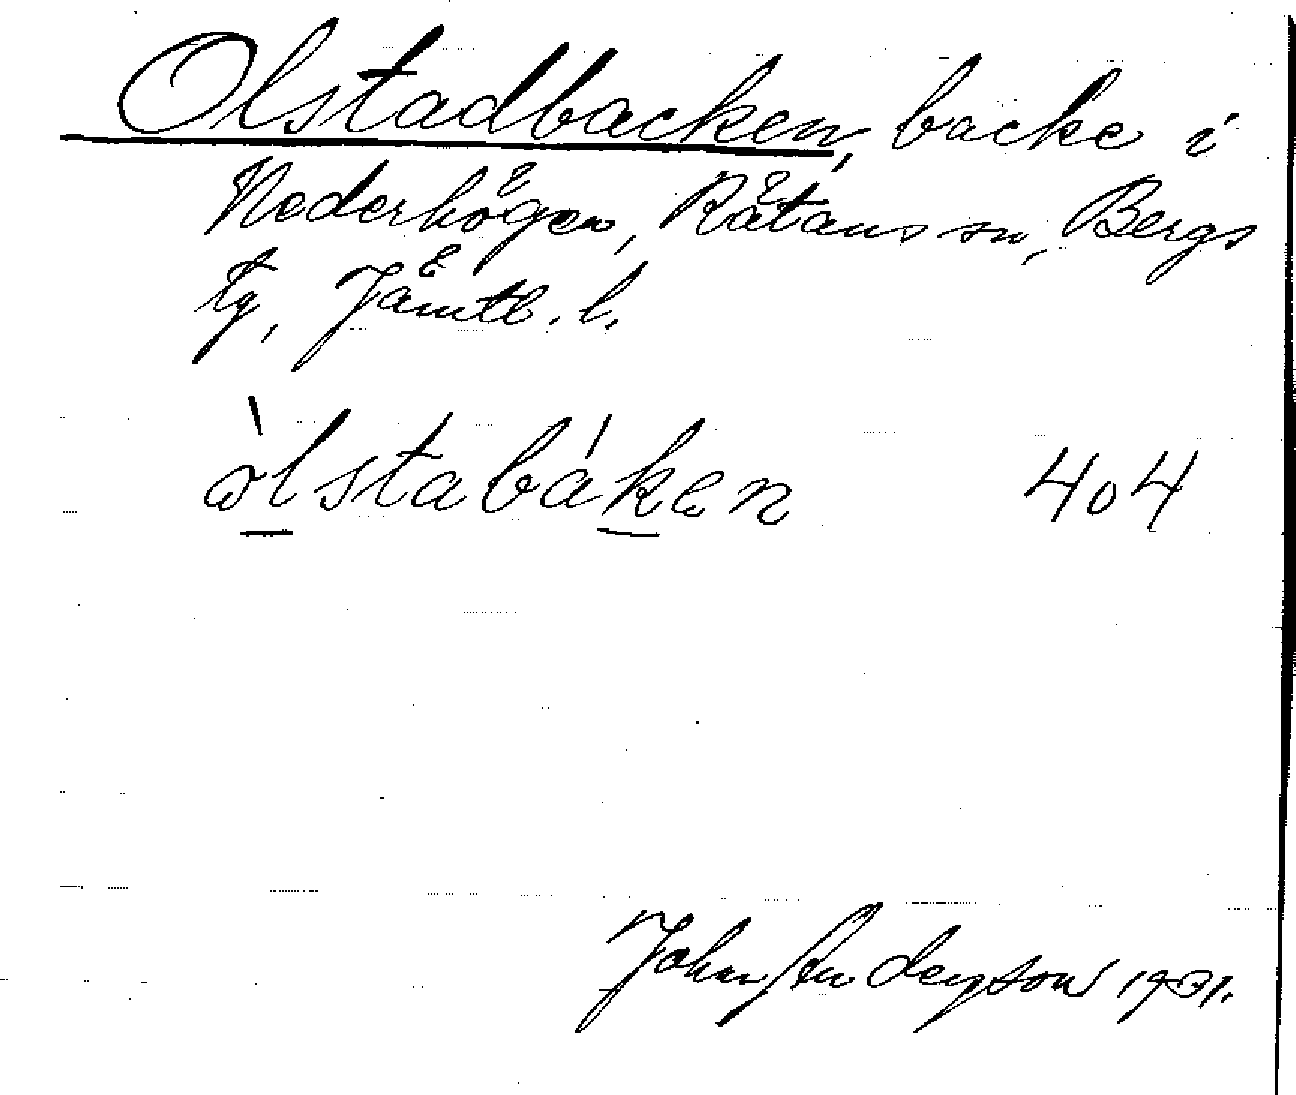 Olstadbacken, backe i
Nederhögen, Rätans sn, Bergs
tg, Jämtl. l.
òlstabáken 404
John Andersson 1931.